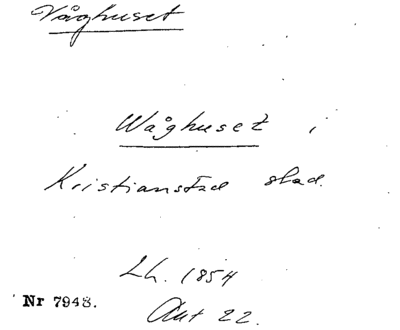 Våghuset
Wåghuset i
Kristianstad stad.
Lh. 1854
Nr 7948.
Akt 22.